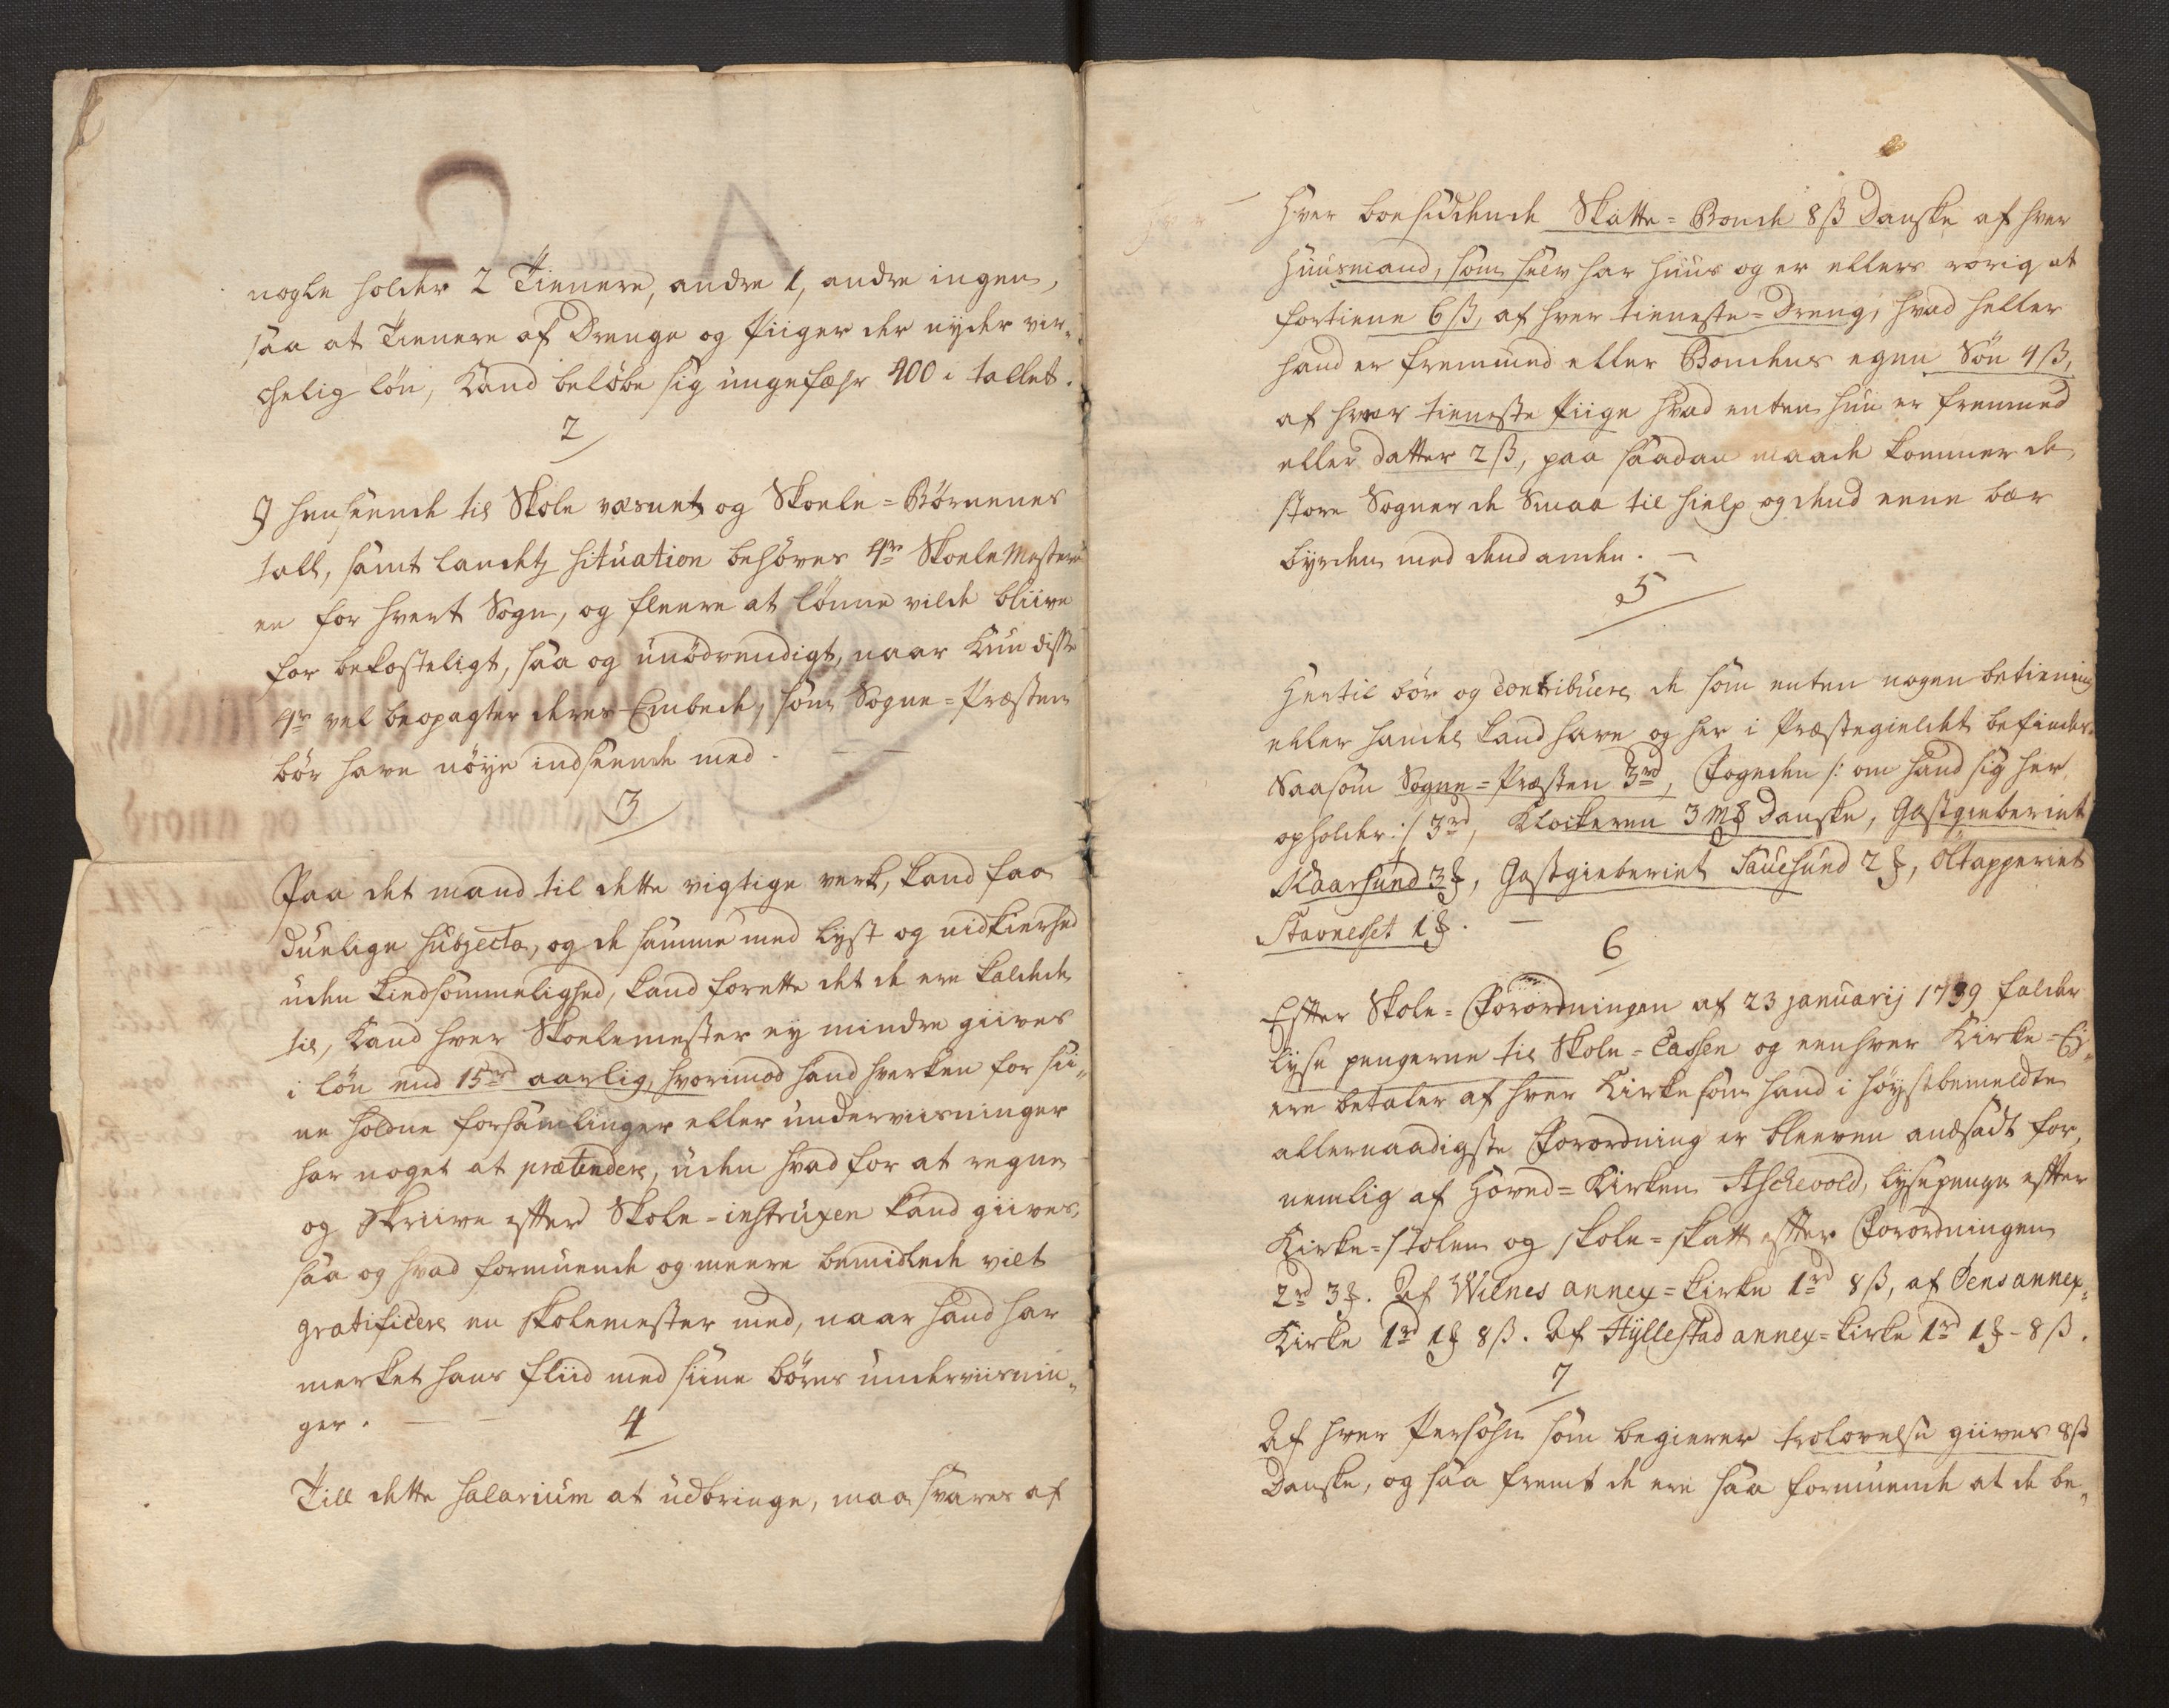 nogle holder 2 Tienere, andre 1, andre ingen,
saa at Tienere af Drenge og Piiger der nyder vir-
chelig løn, Kand beløbe sig ungefæhr 400 i tallet.
2
I henseende til Skole væsnet og Skoele=Børnenes
tall, samt landets situation behøves 4re Skoele Mestere
en for hvert Sogn, og fleere at lønne vilde bliive
for bekosteligt, saa og unødvendigt, naar Kun disse
4re vel beopagter deres Embede, som Sogne=Præsten
bør have nøye indseende med.
3
Paa det mand til dette vigtige verk, kand faa
duelige subjecta, og de samme med lyst og nidkierhed
uden kiedsommelighed, kand forette det de ere kaldede
til, Kand hver Skoelemester ey mindre giives
i løn end 15rd aarlig, hvorimod hand hverken for sii-
ne holdne forsamlinger eller underviisninger
har noget at prætendere, uden hvad for at regne
og Skriive efter Skole=instruxen kand giives,
saa og hvad formuende og meere bemidlede vilt
gratificere en skolemester med, naar hand har
merket hans fliid med siine børns underviisnin-
ger.
4
Till dette salarium at udbringe, maa svares af
Hver boesiddende Skatte=Bonde 8ß Danske af hver
Huusmand, som selv har huus og er ellers rørig at
fortiene 6ß, af hver tieneste=Dreng, hvad heller
hand er fremmed eller Bondens egen Søn 4ß,
af hver tieneste Piige hvad enten hun er fremmed
eller datter 2ß, paa saadan maade kommer de
store Sogner de Smaa til hielp og dend eene bær
byrden med dend anden.
5
Hertil bør og contribuere de som enten nogen betiening
eller handel kand have og her i Præstegieldet befindes.
Saasom Sogne=Præsten 3rd, Fogeden /: om hand sig her
opholder :/ 3rd, Klockeren 3 mk Danske, Gastgieberiet
Kaarsund 3 mk, Gastgieberiet Sauesund 2 mk, Øltapperiet
Stavnesset 1 mk.
6
Efter Skole=Forordningen af 23 januarij 1739 falder
lyse pengerne til Skole=Cassen og eenhver Kirke=Ey-
ere betaler af hver Kirke som hand i høystbemeldte
allernaadigste Forordning er bleeven andsadt for,
nemlig af Hoved=Kirken Aschevold, lysepenge efter
Kirke=stolen og skole=skatt efter Forordningen
2rd 3 mk. Af Wilnes annex=kirke 1rd 8ß, af Øens annex-
Kirke 1rd 1 mk 8ß. Af Hyllestad annex=kirke 1rd 1 mk - 8ß.
7
Af hver Persohn som begierer trolovelse giives 8ß
Danske, og saa fremt de ere saa formuende at de be-